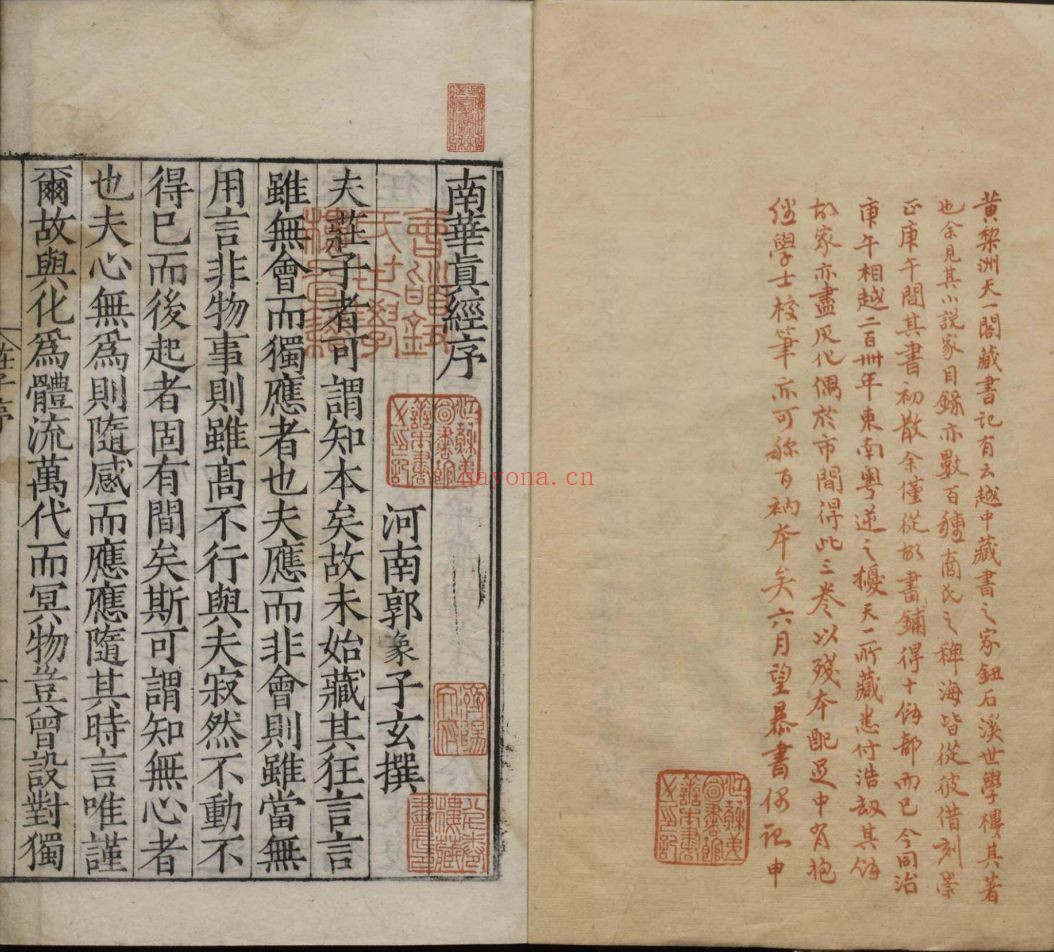 黄棃洲天一閣藏書記有云越中藏書之家鈕石溪世學樓其著
也余見其小說家目錄亦數百種商氏之稗海皆從彼借刻崇
正庚午間其書初散余僅從故書鋪得十餘部而已今同治
庚午相越二百卌年東南粤逆之擾天一所藏悉付浩劫其餘
故家亦盡灰化偶於市間得此三卷以殘本配足中有抱
經學士校筆亦可称百衲本矣六月望暴書偶記申
南華眞經序
河南郭象子玄撰
夫莊子者可謂知本矣故未始藏其狂言言
雖無會而獨應者也夫應而非會則雖當無
用言非物事則雖高不行與夫寂然不動不
得已而後起者固有間矣斯可謂知無心者
也夫心無爲則隨感而應應隨其時言唯謹
爾故與化爲體流萬代而冥物豈曾設對獨
莊子序
江蘇第
一圖書館
善本書
之印記
江蘇第
一圖書館
善本書
之印記
kayona.cn